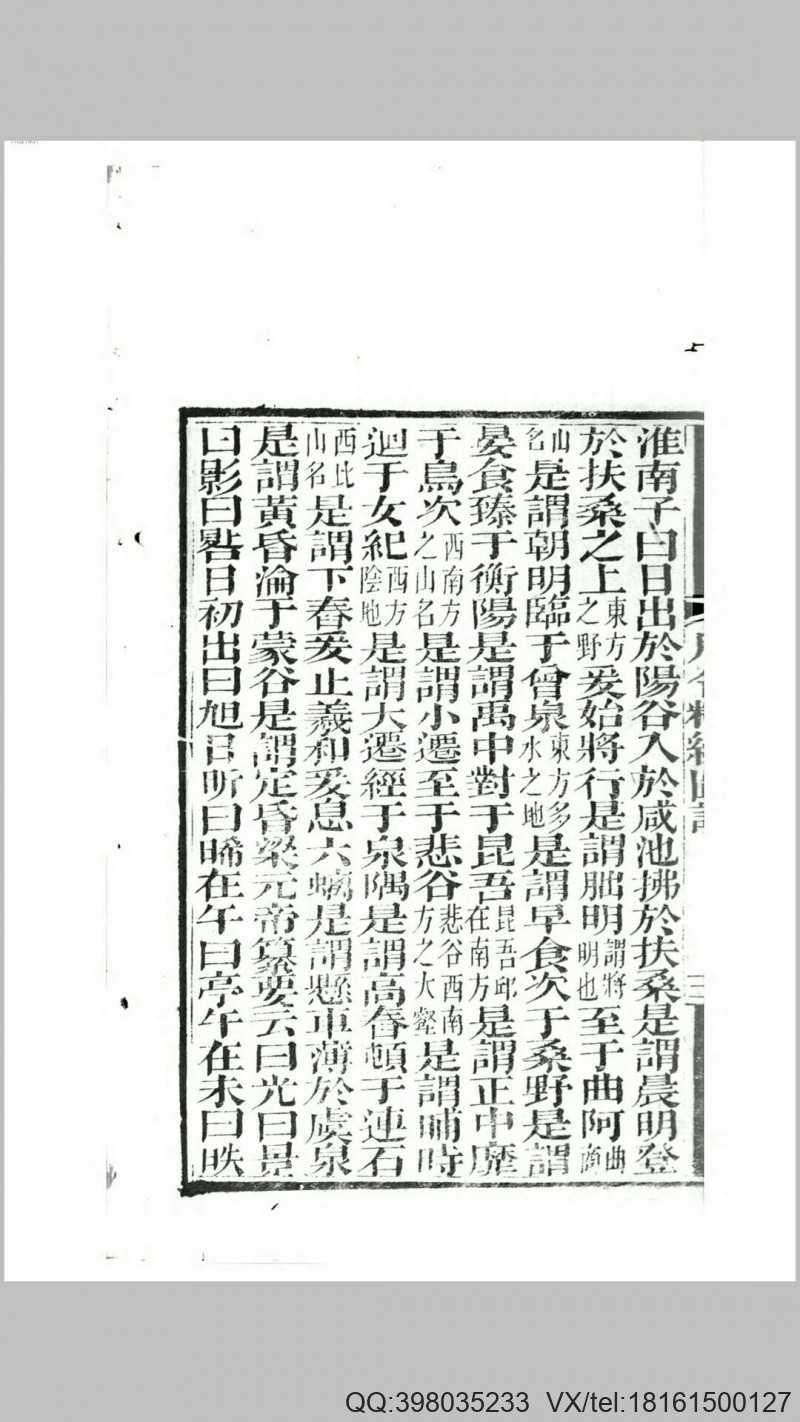 淮南子曰日出於陽谷入於咸池拂於扶桑是謂晨明登
於扶桑之上東方之野爰始將行是謂朏明謂將明也至于曲阿曲阿
山名是謂朝明臨于曾泉東方多水之地是謂早食次于桑野是謂
晏食臻于衡陽是謂禺中對于昆吾昆吾邱在南方是謂正中靡
于鳥次西南方之山名是謂小遷至于悲谷悲谷西南方之大壑是謂晡時
迴于女紀西方陰地是謂大遷經于泉隅是謂高舂頓于連石
西北山名是謂下舂爰止羲和爰息六螭是謂懸車薄於虞泉
是謂黃昏淪于蒙谷是謂定昏梁元帝纂要云日光曰景
日影曰晷日初出曰旭日昕曰晞在午曰亭午在未曰昳
QQ:398035233 VX/tel:18161500127